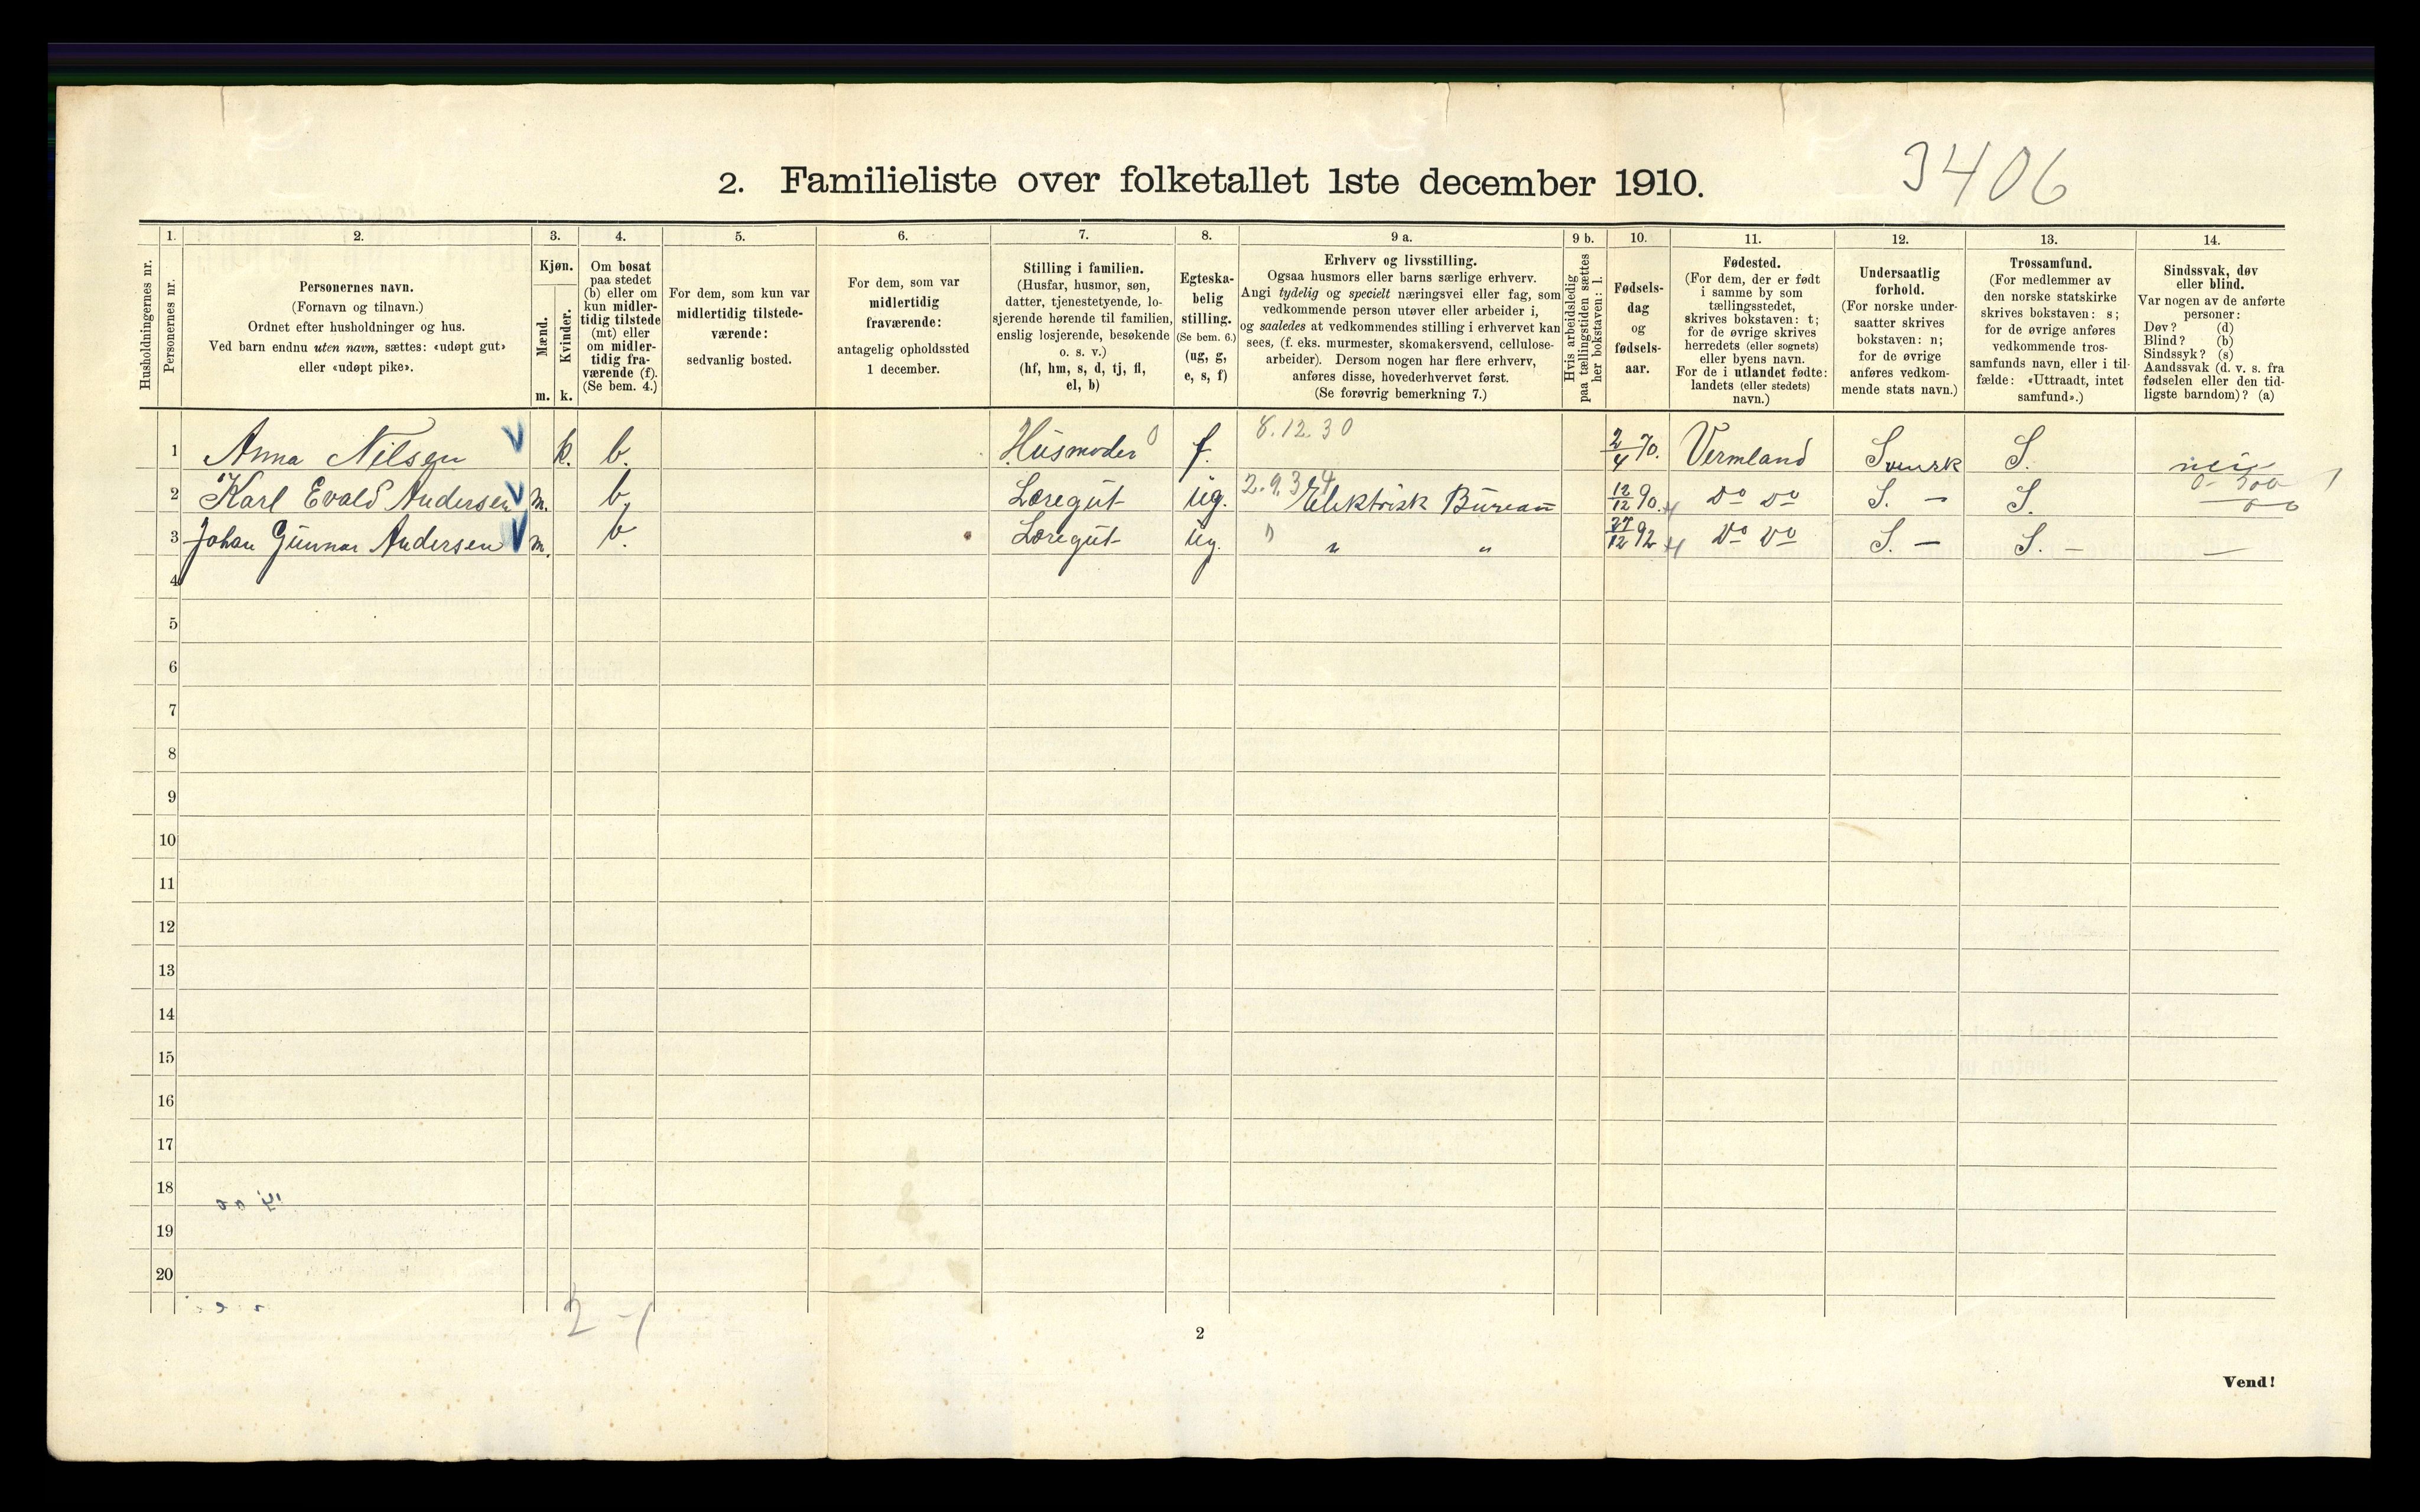 3406
2. Familieliste over folketallet 1ste december 1910.
Husholdningernes nr.
1.
Personernes nr.
2.
Personernes navn.
(Fornavn og tilnavn.)
Ordnet efter husholdninger og hus.
Ved barn endnu uten navn, sættes: «udøpt gut»
eller «udøpt pike».
3.
Kjøn.
Mænd.
Kvinder.
m. k.
4.
Om bosat
paa stedet
(b) eller om
kun midler-
tidig tilstede
(mt) eller
om midler-
tidig fra-
værende (f).
(Se bem. 4.)
5.
For dem, som kun var
midlertidig tilstede-
værende:
sedvanlig bosted.
6.
For dem, som var
midlertidig
fraværende:
antagelig opholdssted
1 december.
7.
Stilling i familien.
(Husfar, husmor, søn,
datter, tjenestetyende, lo-
sjerende hørende til familien,
enslig losjerende, besøkende
o. s. v.)
(hf, hm, s, d, tj, fl,
el, b)
8.
Egteska-
belig
stilling.
(Se bem. 6.)
(ug, g,
e, s, f)
9 a.
Erhverv og livsstilling.
Ogsaa husmors eller barns særlige erhverv.
Angi tydelig og specielt næringsvei eller fag, som
vedkommende person utøver eller arbeider i,
og saaledes at vedkommendes stilling i erhvervet kan
sees, (f. eks. murmester, skomakersvend, cellulose-
arbeider). Dersom nogen har flere erhverv,
anføres disse, hovederhvervet først.
(Se forøvrig bemerkning 7.)
9 b.
Hvis arbeidsledig
paa tællingstiden sættes
her bokstaven: l.
10.
Fødsels-
dag
og
fødsels-
aar.
11.
Fødested.
(For dem, der er født
i samme by som
tællingsstedet,
skrives bokstaven: t;
for de øvrige skrives
herredets (eller sognets)
eller byens navn.
For de i utlandet fødte:
landets (eller stedets)
navn.)
12.
Undersaatlig
forhold.
(For norske under-
saatter skrives
bokstaven: n;
for de øvrige
anføres vedkom-
mende stats navn.)
13.
Trossamfund.
(For medlemmer av
den norske statskirke
skrives bokstaven: s;
for de øvrige anføres
vedkommende tros-
samfunds navn, eller i til-
fælde: «Uttraadt, intet
samfund».)
14.
Sindssvak, døv
eller blind.
Var nogen av de anførte
personer:
Døv? (d)
Blind? (b)
Sindssyk? (s)
Aandssvak (d. v. s. fra
fødselen eller den tid-
ligste barndom)? (a)
1 Anna Nilsen k. b. Husmoder 0 f. 8.12.30 2/4 70. Vermland Svensk S. nei
2 Karl Evald Andersen m. b. Læregut ug. 2.9.34 Elektrisk Bureau 12/12 90. do do S. — S.
3 Johan Gunnar Andersen m. b. Læregut ug. " " " 27/12 92 do do S. — S. — —
4
5
6
7
8
9
10
11
12
13
14
15
16
17
18
19
20
2 - 1
2
Vend!